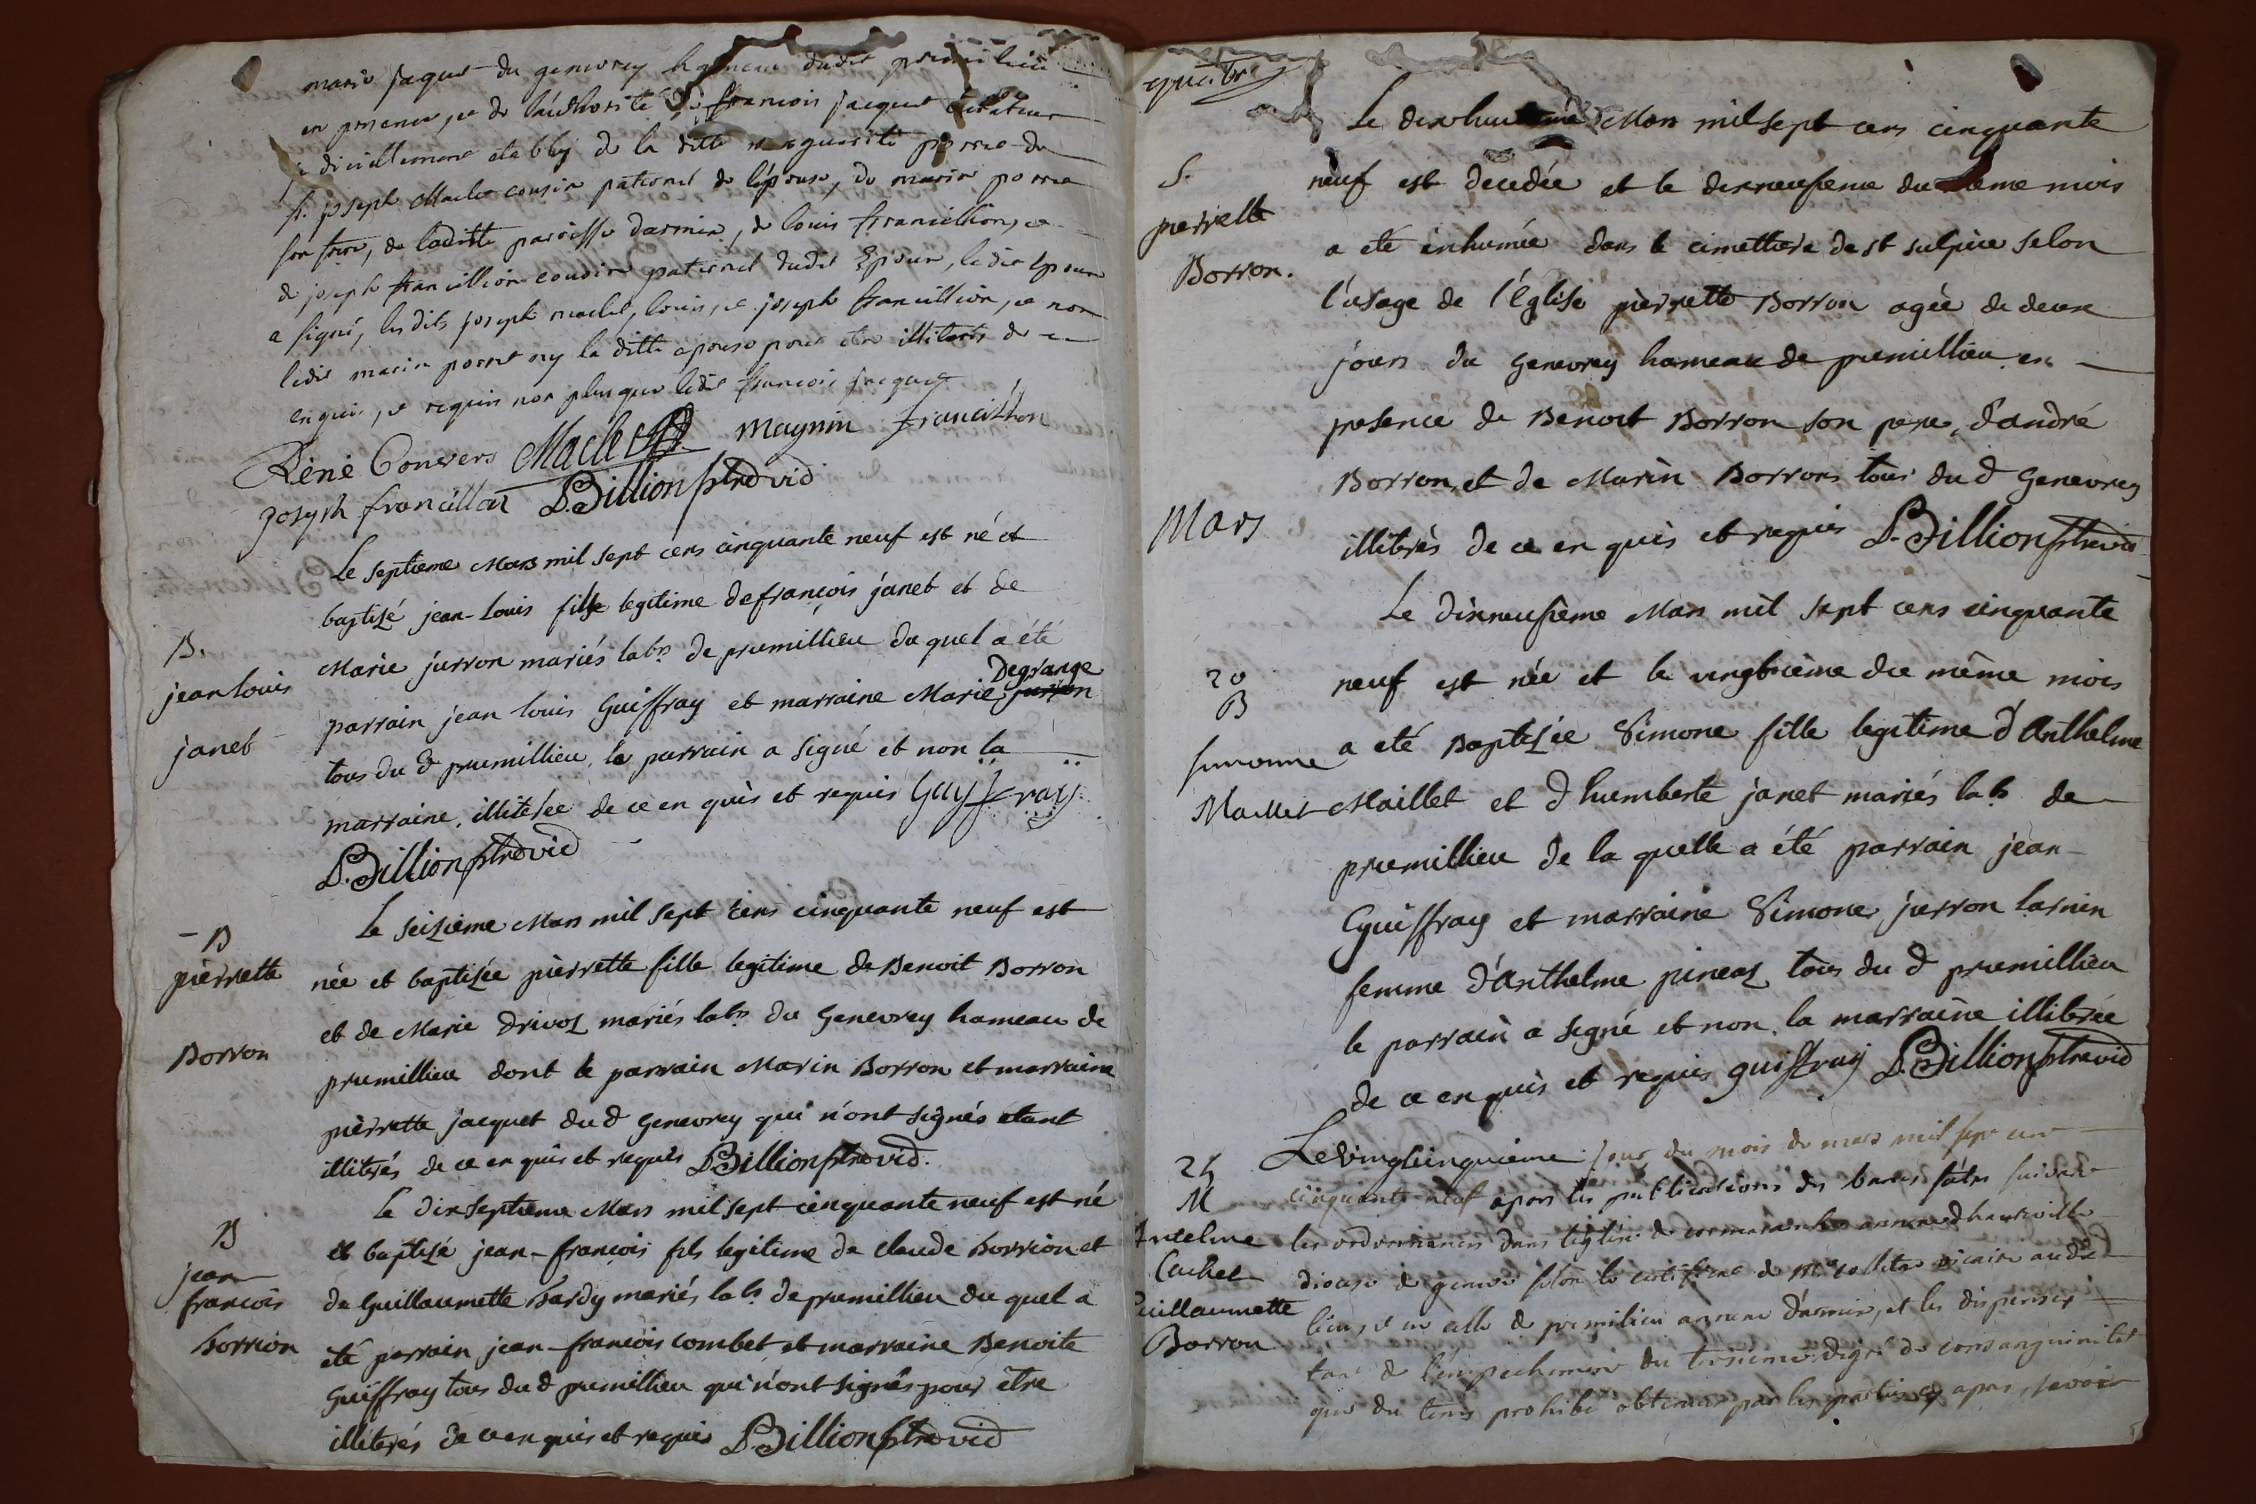 marie jaquet du genevrey hameau dudit premilieu
en presence, et de l'authorité de francois jacquet curateur
judiciellement etably de la ditte
Sr. joseph Maclet cousin paternel de l'epouse, de marin porret
son frere, de laditte paroisse darmix, de louis francillion, et
de joseph francillion cousin paternel dudit Epoux, ledit Epoux
a signé, lesdits joseph maclet, louis, et joseph francillion, et non
ledit marin porret ny la ditte epouse pour etre illiterés de ce
enquis, et requis non plus que ledit francois jacquet
Réné Convers Maclet Magnin francillion
joseph francillon D. Billion ptre vic
Le septieme Mars mil sept cens cinquante neuf est né et
baptisé jean-Louis fils legitime de françois janet et de
B.
Marie jurron mariés labrs de premillieu du quel a été
jean louis
parrain jean louis Guiffray et marraine Marie jurron Degrange
janet
tous du d premillieu, le parrain a signé et non la
marraine, illiterée de ce en quis et requis Guyffray
D. Billion ptre vic
Le seizieme Mars mil sept cens cinquante neuf est
B
pierrette
née et baptisée pierrette fille legitime de Benoit Borron
et de Marie Drivoz mariés labrs du Genevrey hameau de
Borron
premillieu dont le parrain Marin Borron et marraine
pierrette jacquet du d Genevrey qui n'ont signés etant
illiterés de ce en quis et requis D. Billion ptre vic.
Le dix septieme Mars mil sept cinquante neuf est né
B
et baptisé jean-françois fils legitime de claude borrion et
jean
francois
de Guillaumette hardy mariés labs de premillieu du quel a
borrion
été parrain jean-francois combet et marraine Benoite
Guiffray tous du d premillieu qui n'ont signés pour être
illiterés de ce en quis et requis D. Billion ptre vic
quatre
Le dixhuitieme Mars mil sept cens cinquante
S.
neuf est decedée et le dixneusieme du meme mois
pierrette
a eté inhumée dans le cimettiere de st sulpice selon
Borron.
l'usage de l'Eglise pierrette Borron agée de deux
jours du Genevrey hameau de premillieu en
presence de Benoit Borron son pere, d'andré
Borron, et de Marin Borron tous du d Genevrey
Mars
illiterés de ce en quis et requis D. Billion ptre vic
Le dixneusième Mars mil sept cens cinquante
20
B
neuf est née et le vingtieme du même mois
simonne
a eté Baptisée Simone fille legitime d'Anthelme
Maillet
Maillet et d'humberte janet mariés labs de
premillieu de la quelle a été parrain jean
Guiffray et marraine Simone jurron
femme d'Anthelme pineaz tous du d premillieu
le parrain a signé et non la marraine illiterée
de ce en quis et requis guiffray D. Billion ptre vic
25
M
Antelme
Cachet
Guillaumette
Borron
Le vingtcinquieme jour du mois de mars mil sept cent
cinquante neuf apres les publications des bancs faites suivant
les ordonnances dans l'eglise de cormaranche annexe d'hauteville
diocese de geneve selon le certificat de Mr vicaire audit
lieu, et en celle de premilieu annexe d'armix, et les dispenses
tant de l'empechement du troisieme degré de consanguinité
que du tems prohibé obtenues par les parties cy apres, scavoir